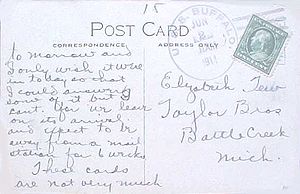 15
POST CARD
CORRESPONDENCE
ADDRESS ONLY
BUFFALO
JUN
1911
to morrow and
I only wish it were
in to day so that
I could answer
some of it but I
can't for we leave
on its arrival
and expect to be
away from a mail
station for 6 weeks.
These cards
are not very much
Elizabeth Tew
Taylor Bros
Battle Creek
Mich.